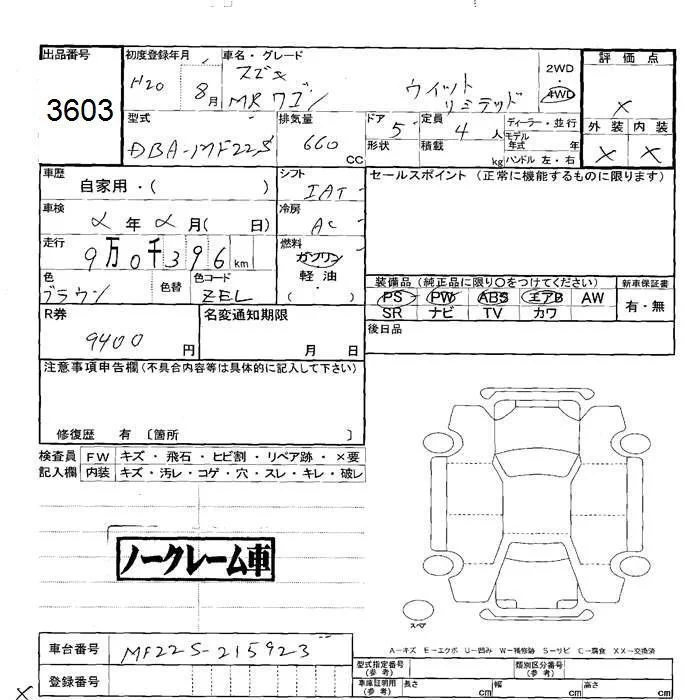 出品番号 初度登録年月 車名・グレード 評価点
3603 H20 8月 スズキ 2WD
MRワゴン ウィット リミテッド 4WD X
型式 排気量 ドア 定員 ディーラー・並行 外装 内装
DBA-MF22S 660 CC 5 4人 モデル年式 年 X X
形状 積載 kg ハンドル 左・右
車歴 自家用・( ) シフト IAT セールスポイント (正常に機能するものに限ります)
車検 年 月( 日) 冷房 AC
走行 9万0千396km 燃料 ガソリン 軽油 ( )
色 ブラウン 色替 色コード ZEL
装備品 (純正品に限り○をつけてください) 新車保証書
PS PW ABS エアB AW 有・無
SR ナビ TV カワ
R券 9400円 名変通知期限 月 日 後日品
注意事項申告欄(不具合内容等は具体的に記入して下さい)
修復歴 有 〔箇所 〕
検査員 FW キズ・飛石・ヒビ割・リペア跡・×要
記入欄 内装 キズ・汚レ・コゲ・穴・スレ・キレ・破レ
ノークレーム車
スペア
A−キズ E−エクボ U−凹み W−補修跡 S−サビ C−腐食 XX−交換済
車台番号 MF22S-215923 型式指定番号(参考) 類別区分番号(参考)
登録番号 車庫証明用(参考) 長さ cm 幅 cm 高さ cm
X